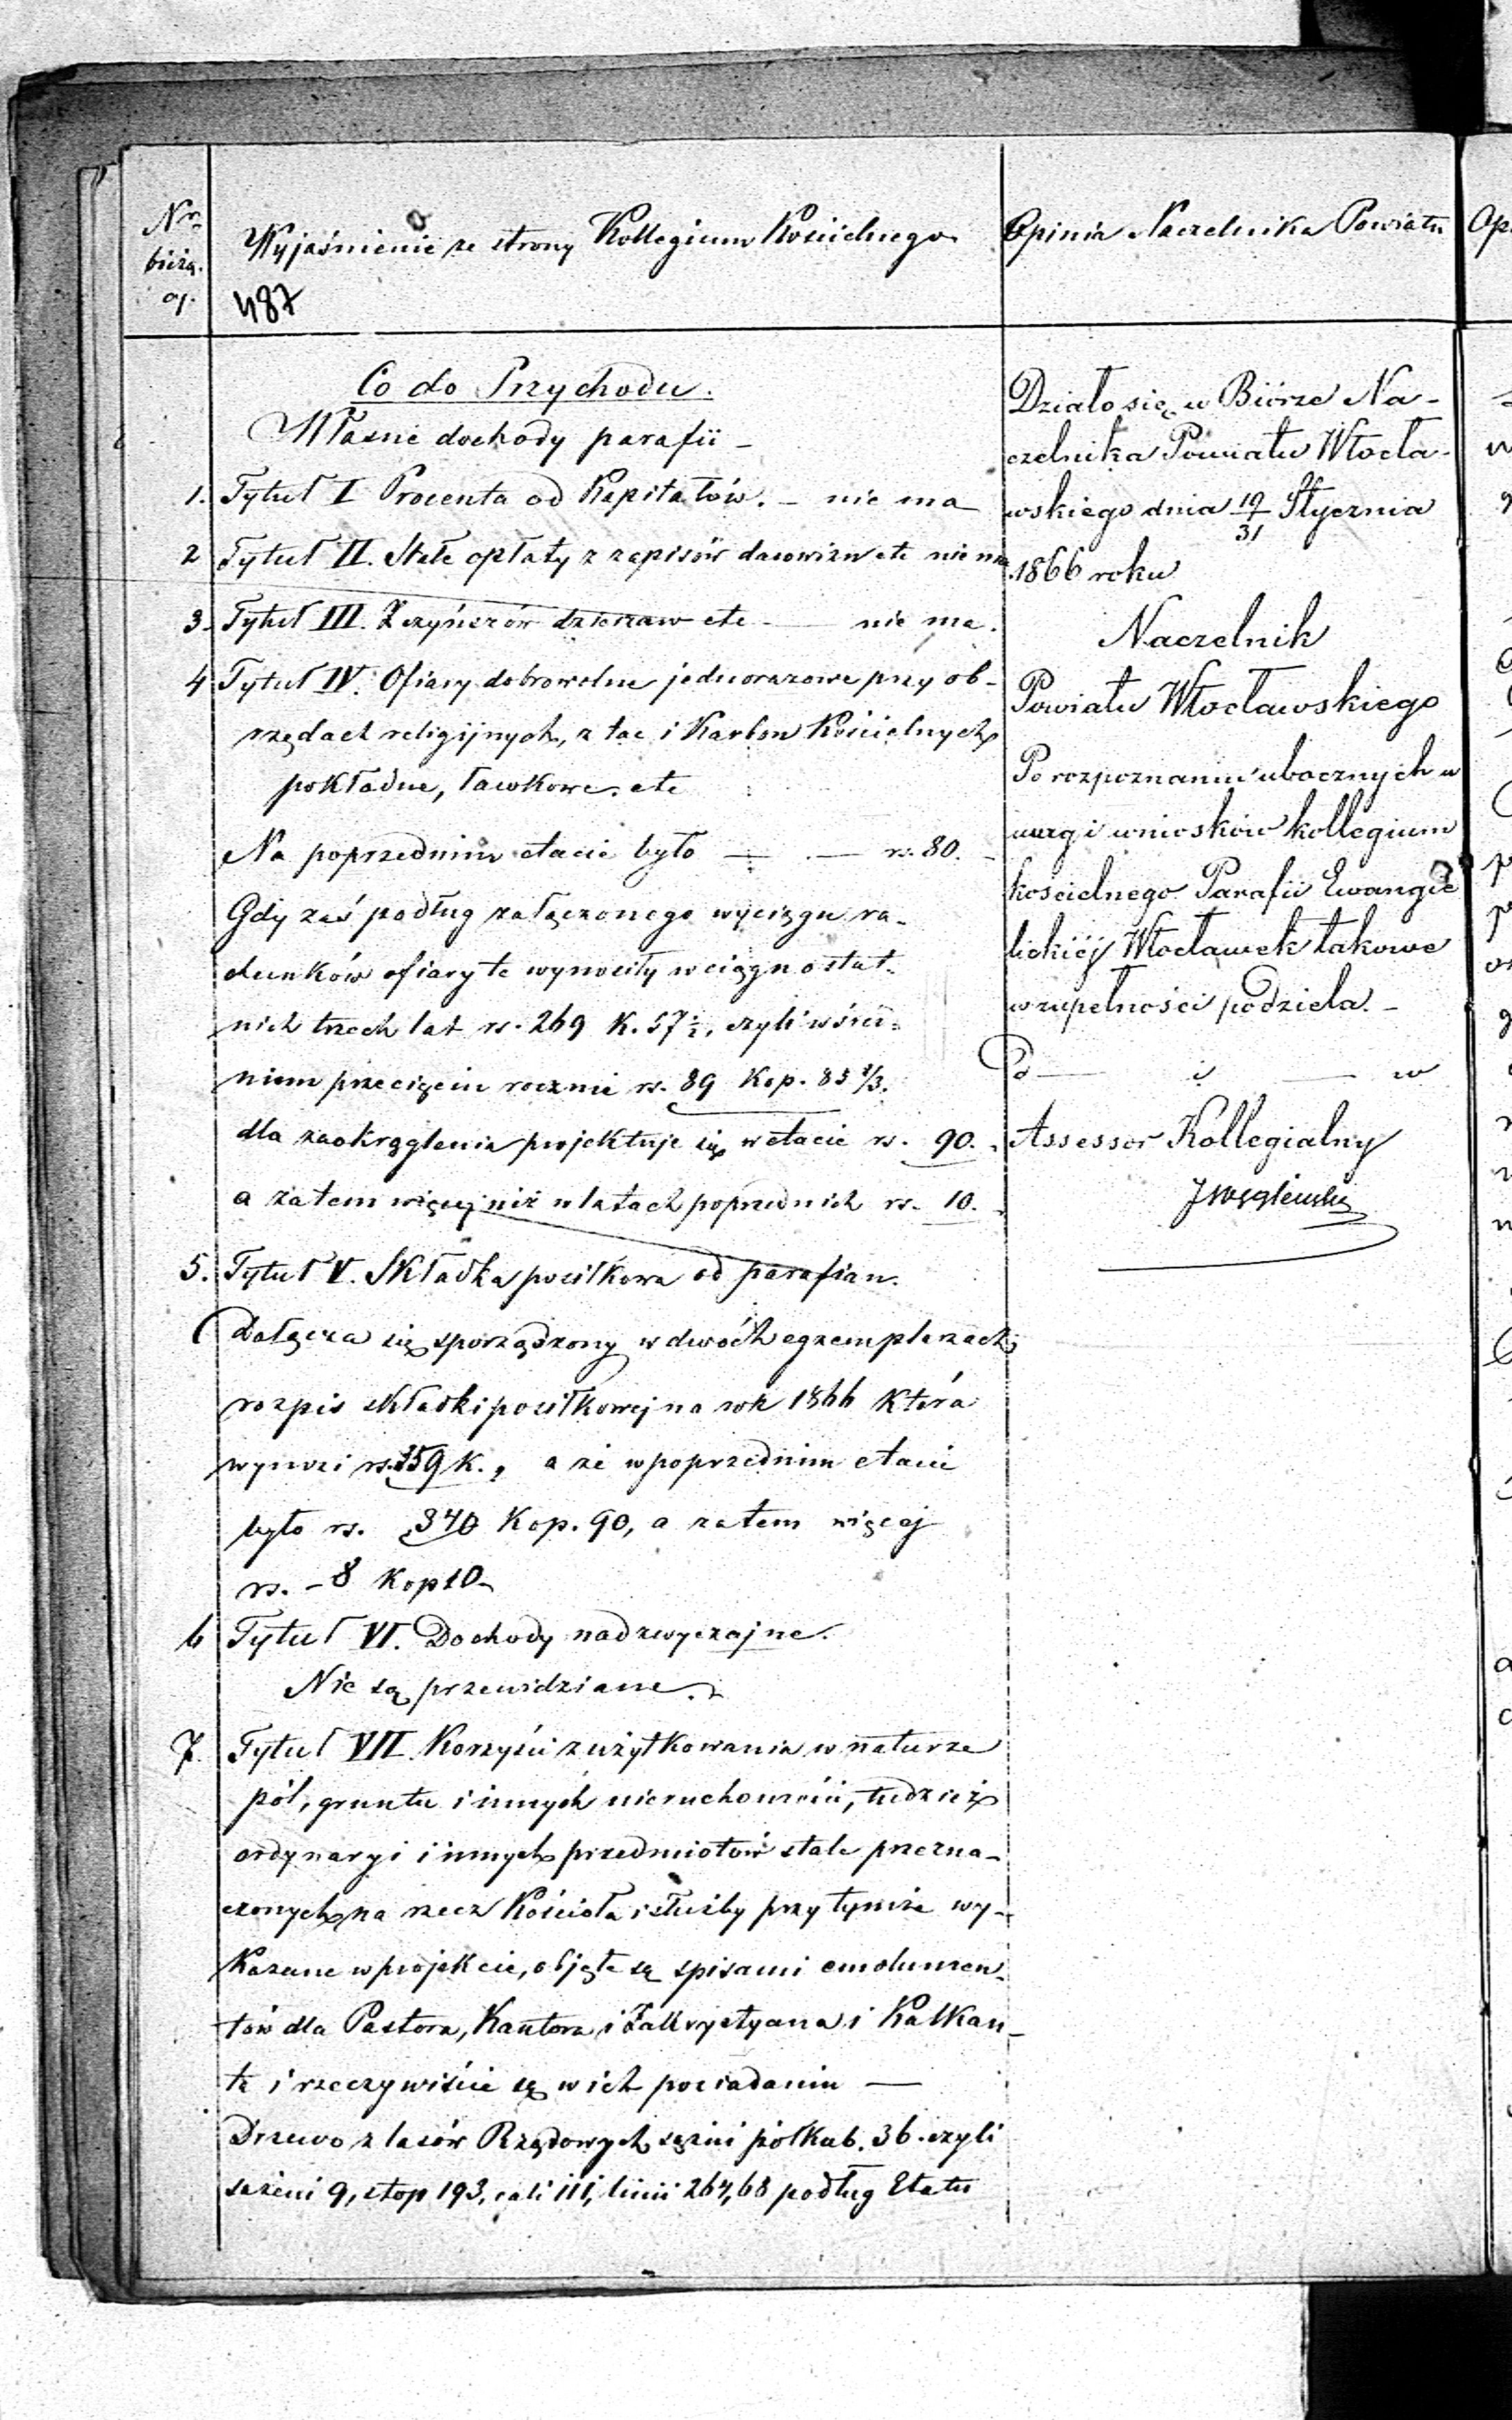 Nr
bieżą.
cy.
Wyjaśnienie ze strony Kollegium Kościelnego
487
Opinia Naczelnika Powiatu
Co do Przychodu.
Własne dochody parafii –
1. Tytuł I Procenta od Kapitałów. – nie ma
2 Tytuł II. Stałe opłaty z zapisów darowizn etc nie ma
3. Tytuł III. Z czynszów dzierżaw etc — nie ma.
4 Tytuł IV. Ofiary dobrowolne jednorazowe przy ob-
rzędach religijnych, z tac i Karbon Kościelnych
pokładne, ławkowe. etc
Na poprzednim etacie było — . — rs. 80. –
Gdy zaś podług załączonego wyciągu ra-
chunków ofiary te wynosiły w ciągu ostat-
nich trzech lat rs. 269 K. 57½, czyli w śred-
niem przecięciu rocznie rs. 89 Kop. 85 1/3.
dla zaokrąglenia projektuje się w etacie rs. 90.
a zatem więcej niż w latach poprzednich rs. 10.
5. Tytuł V. Składka posiłkowa od parafian.
Dołącza się sporządzony w dwóch egzemplarzach
rozpis składki posiłkowej na rok 1866 która
wynosi rs. 359 K. , a że w poprzednim etacie
było rs. 340 Kop. 90, a zatem więcej
rs. – 8 Kop 10 –
6 Tytuł VI. Dochody nadzwyczajne.
Nie są przewidziane. –
7. Tytuł VII. Korzyści z użytkowania w naturze
pól, gruntu i innych nieruchomości, tudzież
ordynaryi i innych przedmiotów stale przezna-
czonych na rzecz Kościoła i służby przy tymże wy-
kazane w projekcie, objęte są spisami emolumen-
tów dla Pastora, Kantora i Zakrystyana i Kalkan-
ta i rzeczywiście są w ich posiadaniu —
Drzewo z lasów Rządowych sążni półkub. 36. czyli
sążeni 9, stop 193, cali 111, linii 264,68 podług Etatu
Działo się w Biórze Na-
czelnika Powiatu Włocła-
wskiego dnia 19/31 Stycznia
1866 roku
Naczelnik
Powiatu Włocławskiego
Po rozpoznaniu ubocznych u
uwag i wniosków kollegium
kościelnego Parafii Ewangie
lickiéj Włocławek takowe
w zupełności podziela. –
Po — i — w
Assessor Kollegialny